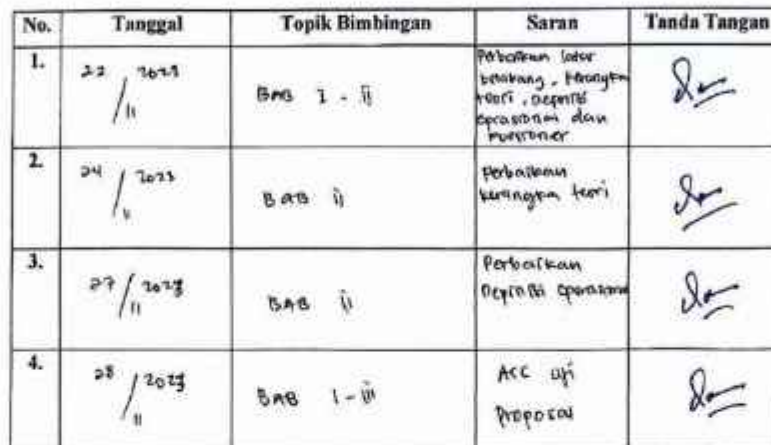 No. Tanggal Topik Bimbingan Saran Tanda Tangan
1. 22/11 2023 BAB I - II Perbaikan latar
belakang, kerangka
teori, Depinisi
oprasional dan
kuesioner
2. 24/11 2023 BAB II Perbaikan
kerangka teori
3. 27/11 2023 BAB II Perbaikan
Depinisi Oprasional
4. 28/11 2023 BAB I - III ACC uji
Proposal